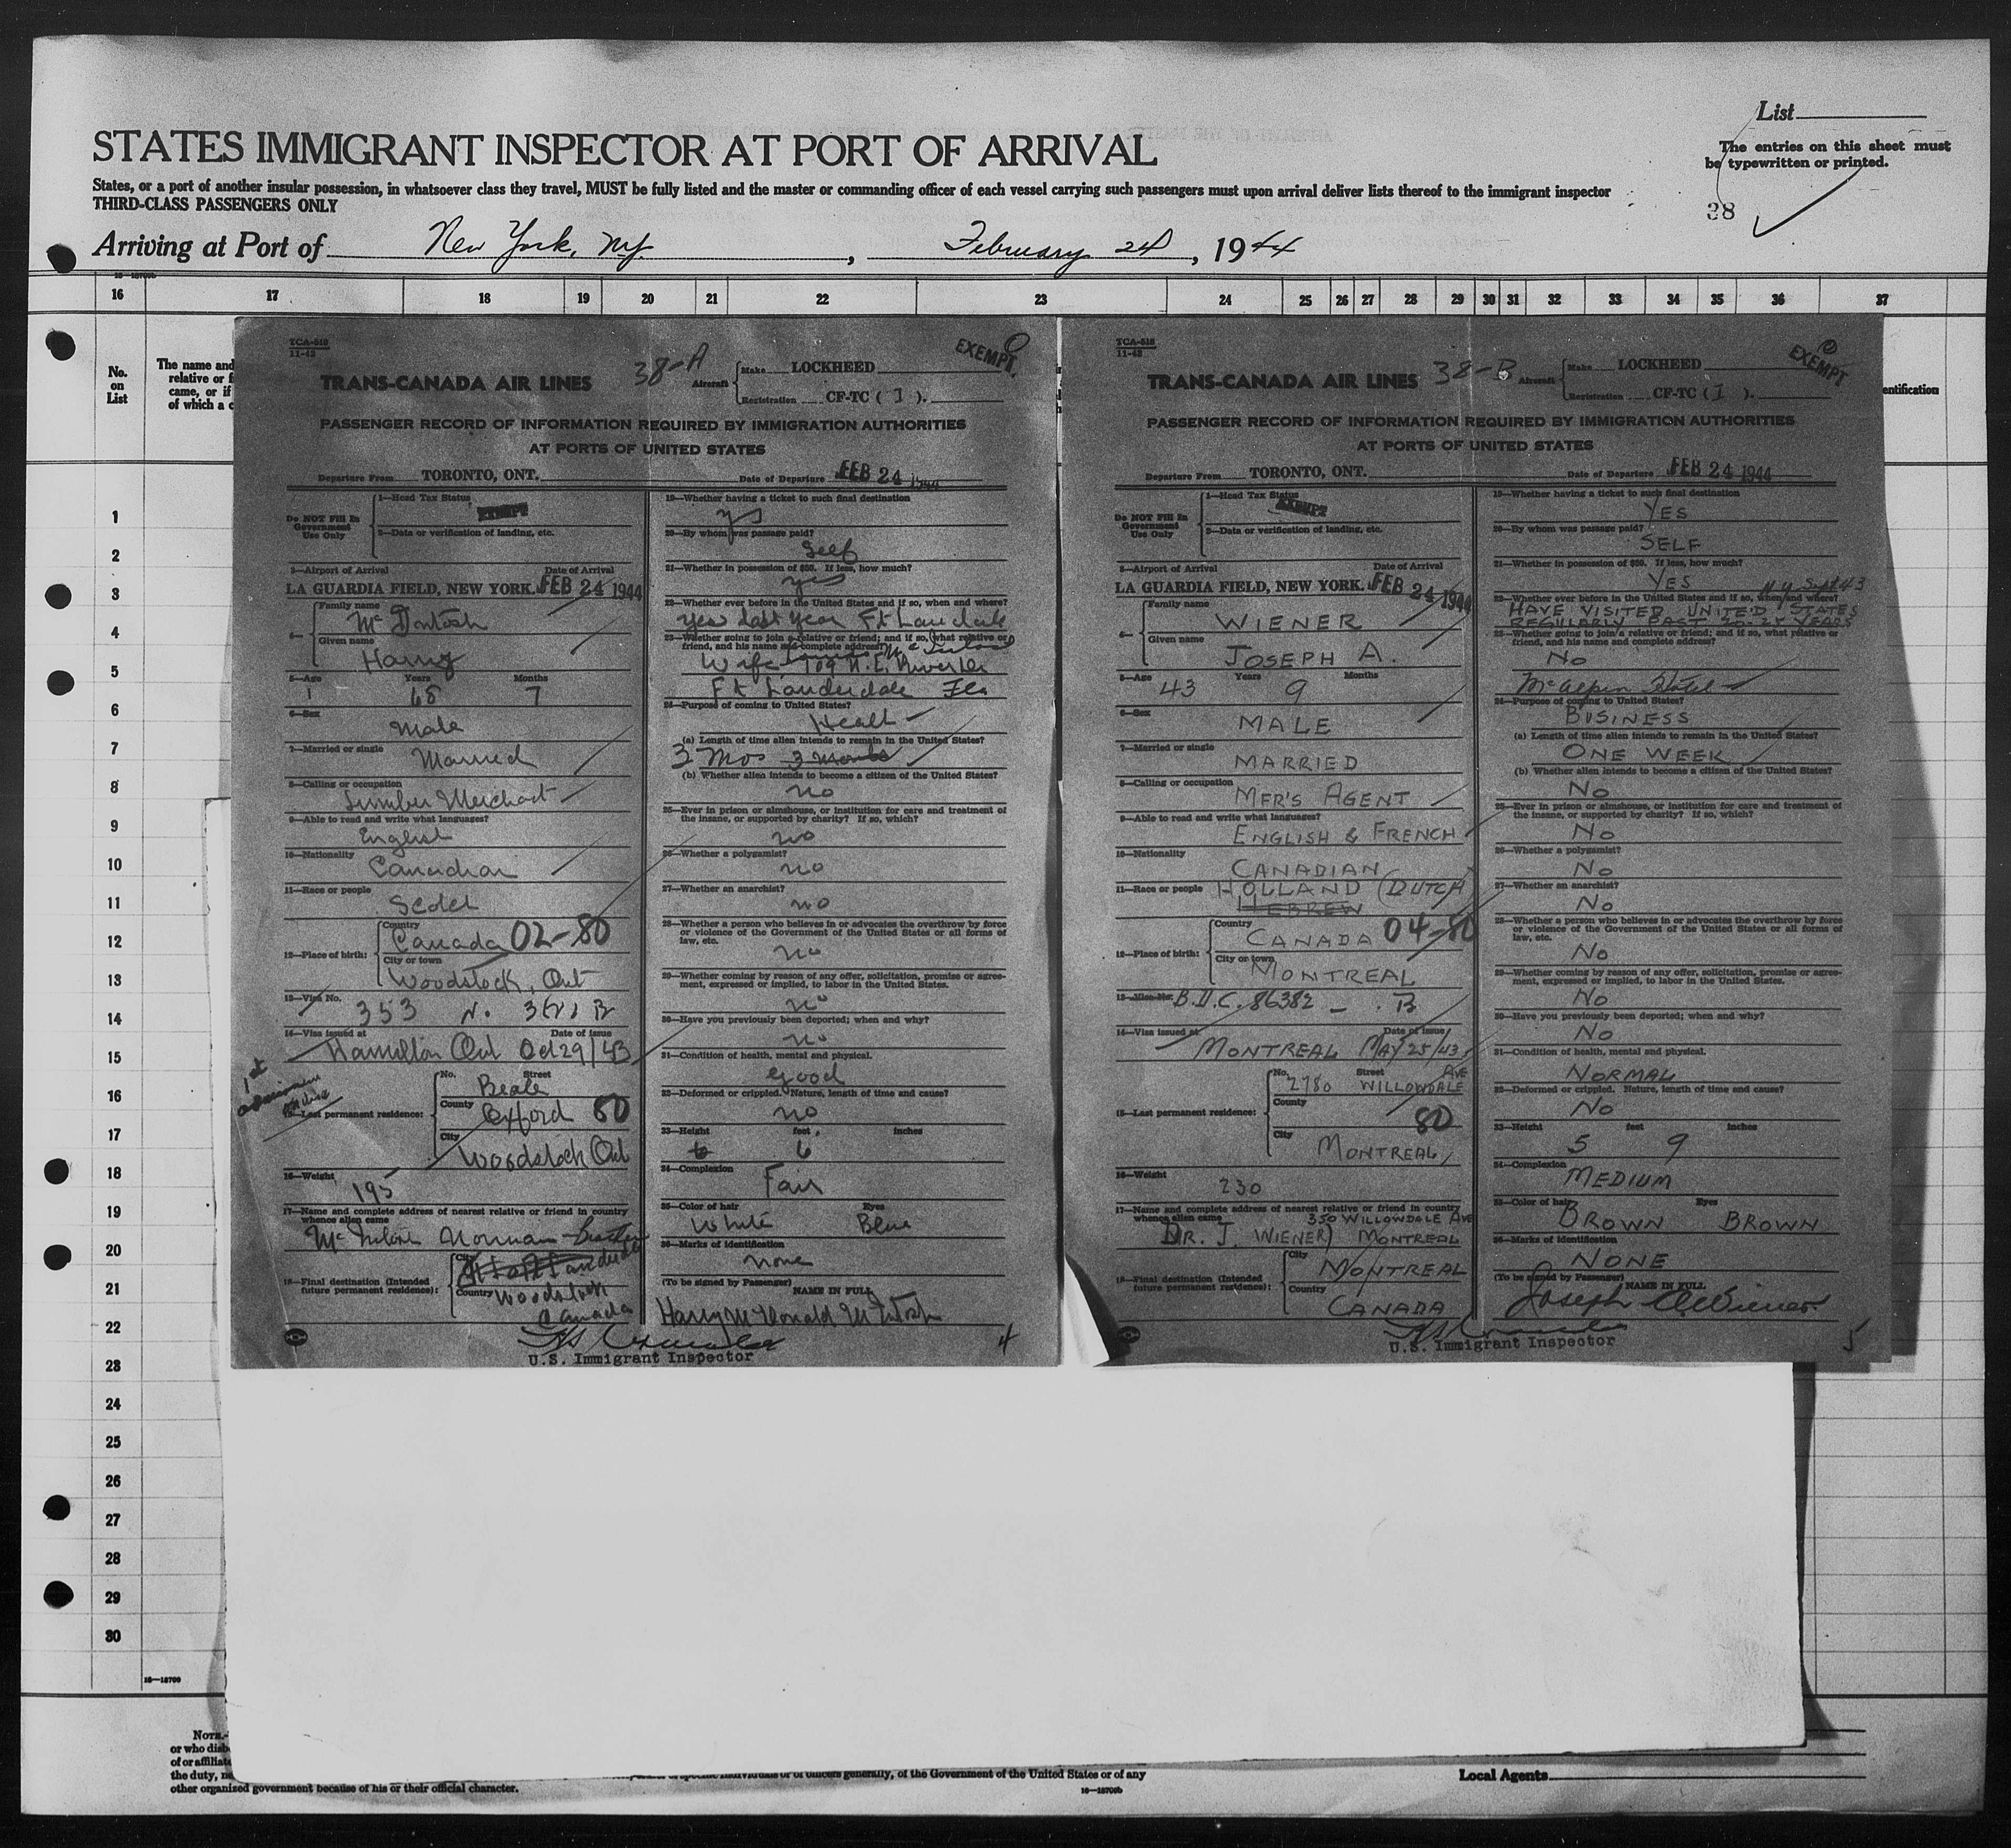 List
STATES IMMIGRANT INSPECTOR AT PORT OF ARRIVAL
The entries on this sheet must
be typewritten or printed.
States, or a port of another insular possession, in whatsoever class they travel, MUST be fully listed and the master or commanding officer of each vessel carrying such passengers must upon arrival deliver lists thereof to the immigrant inspector
THIRD-CLASS PASSENGERS ONLY
38
Arriving at Port of New York, N.Y. , February 24 , 1944
16 17 18 19 20 21 22 23 24 25 26 27 28 29 30 31 32 33 34 35 36 37
No.
on
List
The name and
relative or f
came, or if
of which a c
entification
1
2
3
4
5
6
7
8
9
10
11
12
13
14
15
16
17
18
19
20
21
22
23
24
25
26
27
28
29
30
TCA-518
11-42
38-A
EXEMPT.
TRANS-CANADA AIR LINES
Aircraft
Make LOCKHEED
Registration CF-TC ( 1 ).
PASSENGER RECORD OF INFORMATION REQUIRED BY IMMIGRATION AUTHORITIES
AT PORTS OF UNITED STATES
Departure From TORONTO, ONT.
Date of Departure FEB 24 1944
Do NOT Fill In
Government
Use Only
1—Head Tax Status
EXEMPT
2—Data or verification of landing, etc.
3—Airport of Arrival Date of Arrival
LA GUARDIA FIELD, NEW YORK. FEB 24 1944
4—
Family name
McIntosh
Given name
Harry
5—Age Years Months
68 7
6—Sex
Male
7—Married or single
Married
8—Calling or occupation
Lumber Merchant
9—Able to read and write what languages?
English
10—Nationality
Canadian
11—Race or people
Scotch
12—Place of birth:
Country
Canada 02-80
City or town
Woodstock, Ont
13—Visa No.
353
14—Visa issued at Date of issue
Hamilton Ont Oct 29/43
1st
15—Last permanent residence:
No. Street
Beale
County
Oxford 80
City
Woodstock Ont
16—Weight
195
17—Name and complete address of nearest relative or friend in country
whence alien came
Norman Brother
18—Final destination (Intended
future permanent residence):
City
Country Woodstock
Canada
19—Whether having a ticket to such final destination
yes
20—By whom was passage paid?
Self
21—Whether in possession of $50. If less, how much?
yes
22—Whether ever before in the United States and if so, when and where?
yes last year Ft Lauderdale
23—Whether going to join a relative or friend; and if so, what relative or
friend, and his name and complete address?
Wife 709 N.E.
Ft Lauderdale Fla
24—Purpose of coming to United States?
Healt
(a) Length of time alien intends to remain in the United States?
3 Mos 3 Months
(b) Whether alien intends to become a citizen of the United States?
no
25—Ever in prison or almshouse, or institution for care and treatment of
the insane, or supported by charity? If so, which?
no
26—Whether a polygamist?
no
27—Whether an anarchist?
no
28—Whether a person who believes in or advocates the overthrow by force
or violence of the Government of the United States or all forms of
law, etc.
no
29—Whether coming by reason of any offer, solicitation, promise or agree-
ment, expressed or implied, to labor in the United States.
no
30—Have you previously been deported; when and why?
no
31—Condition of health, mental and physical.
good
32—Deformed or crippled. Nature, length of time and cause?
no
33—Height feet, inches
6 6
34—Complexion
Fair
35—Color of hair Eyes
White Blue
36—Marks of identification
none
(To be signed by Passenger)
NAME IN FULL
Harry McDonald McIntosh
U.S. Immigrant Inspector
4
TCA-518
11-42
38-B
EXEMPT
TRANS-CANADA AIR LINES
Aircraft
Make LOCKHEED
Registration CF-TC ( 1 ).
PASSENGER RECORD OF INFORMATION REQUIRED BY IMMIGRATION AUTHORITIES
AT PORTS OF UNITED STATES
Departure From TORONTO, ONT.
Date of Departure FEB 24 1944
Do NOT Fill In
Government
Use Only
1—Head Tax Status
EXEMPT
2—Data or verification of landing, etc.
3—Airport of Arrival Date of Arrival
LA GUARDIA FIELD, NEW YORK. FEB 24 1944
4—
Family name
WIENER
Given name
JOSEPH A.
5—Age Years Months
43 9
6—Sex
MALE
7—Married or single
MARRIED
8—Calling or occupation
MFR'S AGENT
9—Able to read and write what languages?
ENGLISH & FRENCH
10—Nationality
CANADIAN
11—Race or people HOLLAND (DUTCH)
HEBREW
12—Place of birth:
Country
CANADA 04-80
City or town
MONTREAL
13—Visa No. 86382 - B
14—Visa issued at Date of issue
MONTREAL MAY 25/43
15—Last permanent residence:
No. Street AVE
2780 WILLOWDALE
County
80
City
MONTREAL
16—Weight
230
17—Name and complete address of nearest relative or friend in country
whence alien came 350 WILLOWDALE AVE
DR. J. WIENER MONTREAL
18—Final destination (Intended
future permanent residence):
City
MONTREAL
Country
CANADA
19—Whether having a ticket to such final destination
YES
20—By whom was passage paid?
SELF
21—Whether in possession of $50. If less, how much?
YES N.Y. Sept 43
22—Whether ever before in the United States and if so, when and where?
HAVE VISITED UNITED STATES
REGULARLY PAST 20-25 YEARS
23—Whether going to join a relative or friend; and if so, what relative or
friend, and his name and complete address?
NO
McAlpin Hotel
24—Purpose of coming to United States?
BUSINESS
(a) Length of time alien intends to remain in the United States?
ONE WEEK
(b) Whether alien intends to become a citizen of the United States?
NO
25—Ever in prison or almshouse, or institution for care and treatment of
the insane, or supported by charity? If so, which?
NO
26—Whether a polygamist?
NO
27—Whether an anarchist?
NO
28—Whether a person who believes in or advocates the overthrow by force
or violence of the Government of the United States or all forms of
law, etc.
NO
29—Whether coming by reason of any offer, solicitation, promise or agree-
ment, expressed or implied, to labor in the United States.
NO
30—Have you previously been deported; when and why?
NO
31—Condition of health, mental and physical.
NORMAL
32—Deformed or crippled. Nature, length of time and cause?
NO
33—Height feet inches
5 9
34—Complexion
MEDIUM
35—Color of hair Eyes
BROWN BROWN
36—Marks of identification
NONE
(To be signed by Passenger) NAME IN FULL
Joseph A Wiener
U.S. Immigrant Inspector
5
16—18709
NOTE.—
or who disb
of or affiliate
the duty, ne
of specific individuals or of officers generally, of the Government of the United States or of any
other organized government because of his or their official character.
16—18709b
Local Agents